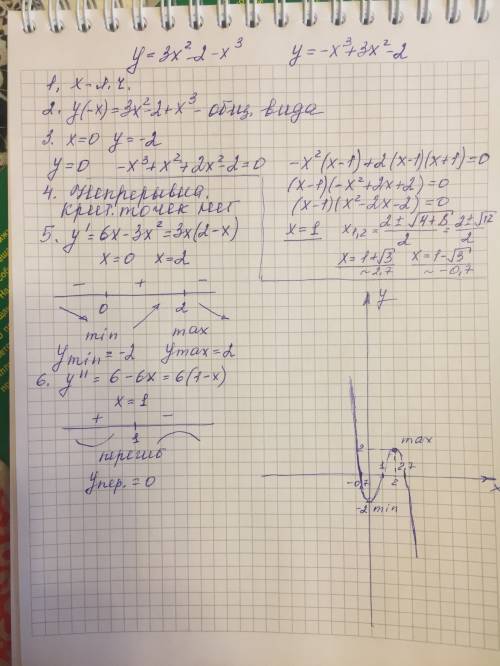 y = 3x² - 2 - x³   y = -x³ + 3x² - 2
1. x - л.ч.
2. y(-x) = 3x² - 2 + x³ - общ. вида
3. x = 0  y = -2
y = 0   -x³ + x² + 2x² - 2 = 0
-x²(x-1) + 2(x-1)(x+1) = 0
(x-1)(-x² + 2x + 2) = 0
(x-1)(x² - 2x - 2) = 0
x = 1   x₁,₂ = (2 ± √(4+8))/2 = (2 ± √12)/2
x = 1+√3   x = 1-√3
~2,7   ~-0,7
4. Непрерывна.
Крит. точек нет
5. y' = 6x - 3x² = 3x(2-x)
x = 0   x = 2
- + -
0 2
min max
y min = -2   y max = 2
6. y'' = 6 - 6x = 6(1-x)
x = 1
+ -
1
перегиб
y пер. = 0
y
max
2
-0,7 1 2,7 x
2
-2 min